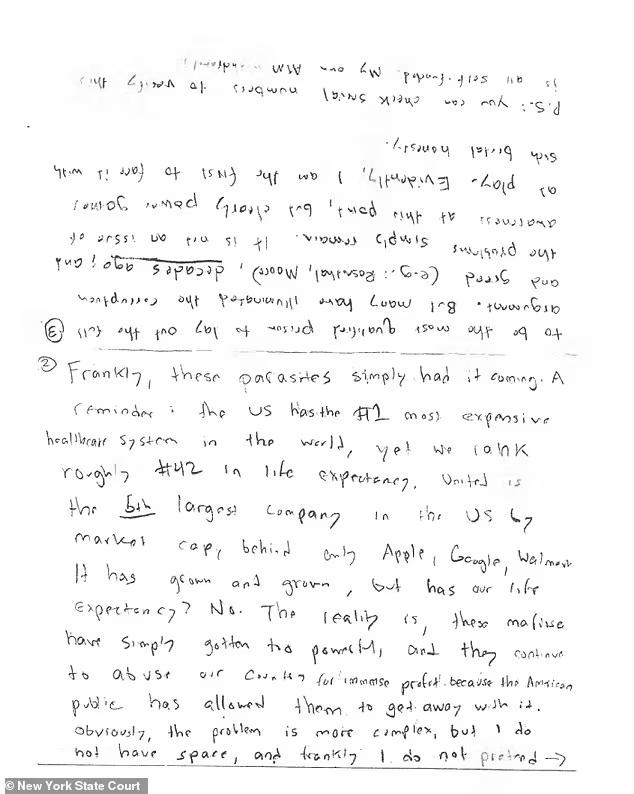 ② Frankly, these parasites simply had it coming. A
reminder: the US has the #1 most expensive
healthcare system in the world, yet we rank
roughly #42 in life expectancy. United is
the 5th largest company in the US by
market cap, behind only Apple, Google, Walmart.
It has grown and grown, but has our life
expectancy? No. The reality is, these
have simply gotten too powerful, and they continue
to abuse our country for immense profit because the American
public has allowed them to get away with it.
Obviously, the problem is more complex, but I do
not have space, and frankly I do not pretend →
③ to be the most qualified person to lay out the full
argument. But many have illuminated the corruption
and greed (e.g.: Rosenthal, Moore), decades ago, and
the problems simply remain. It is not an issue of
awareness at this point, but clearly power games
at play. Evidently, I am the first to face it with
such brutal honesty.
P.S.: you can check serial numbers to verify this
is all self-funded. My own ATM withdrawals.
© New York State Court